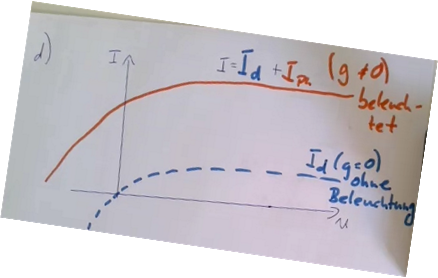 d)
I
I = I_d + I_ph (g ≠ 0)
beleuch-
tet
I_d (g=0)
ohne
Beleuchtung
u